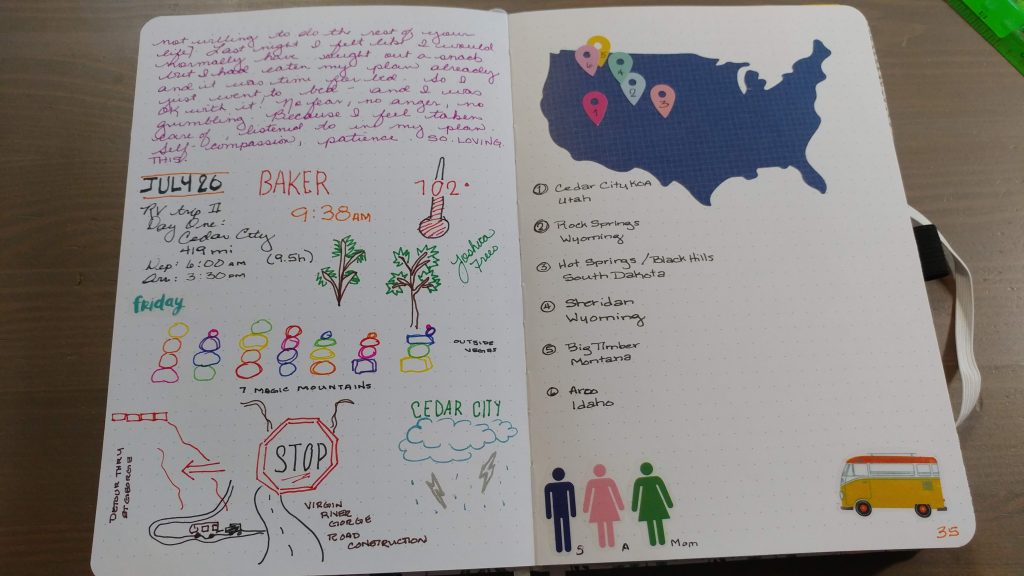 not willing to do the rest of your
life? Last night I felt like I would
normally have sought out a snack
but I had eaten my plan already
and it was time for bed. So I
just went to bed - and I was
OK with it! No fear, no anger, no
grumbling. Because I feel taken
care of, listened to in my plan
self-compassion, patience. SO. LOVING
THIS.
JULY 26
BAKER
102°
9:38AM
RV trip II
Day One:
Cedar City
419 mi
(9.5h)
Dep: 6:00 am
Arr: 3:30 pm
Joshua
Trees
Friday
OUTSIDE
VEGAS
7 MAGIC MOUNTAINS
DETOUR THRU
ST. GEORGE
STOP
VIRGIN
RIVER
GORGE
ROAD
CONSTRUCTION
CEDAR CITY
6
4
2
1
3
① Cedar City KOA
Utah
② Rock Springs
Wyoming
③ Hot Springs / Black Hills
South Dakota
④ Sheridan
Wyoming
⑤ Big Timber
Montana
⑥ Arco
Idaho
S
A
Mom
35